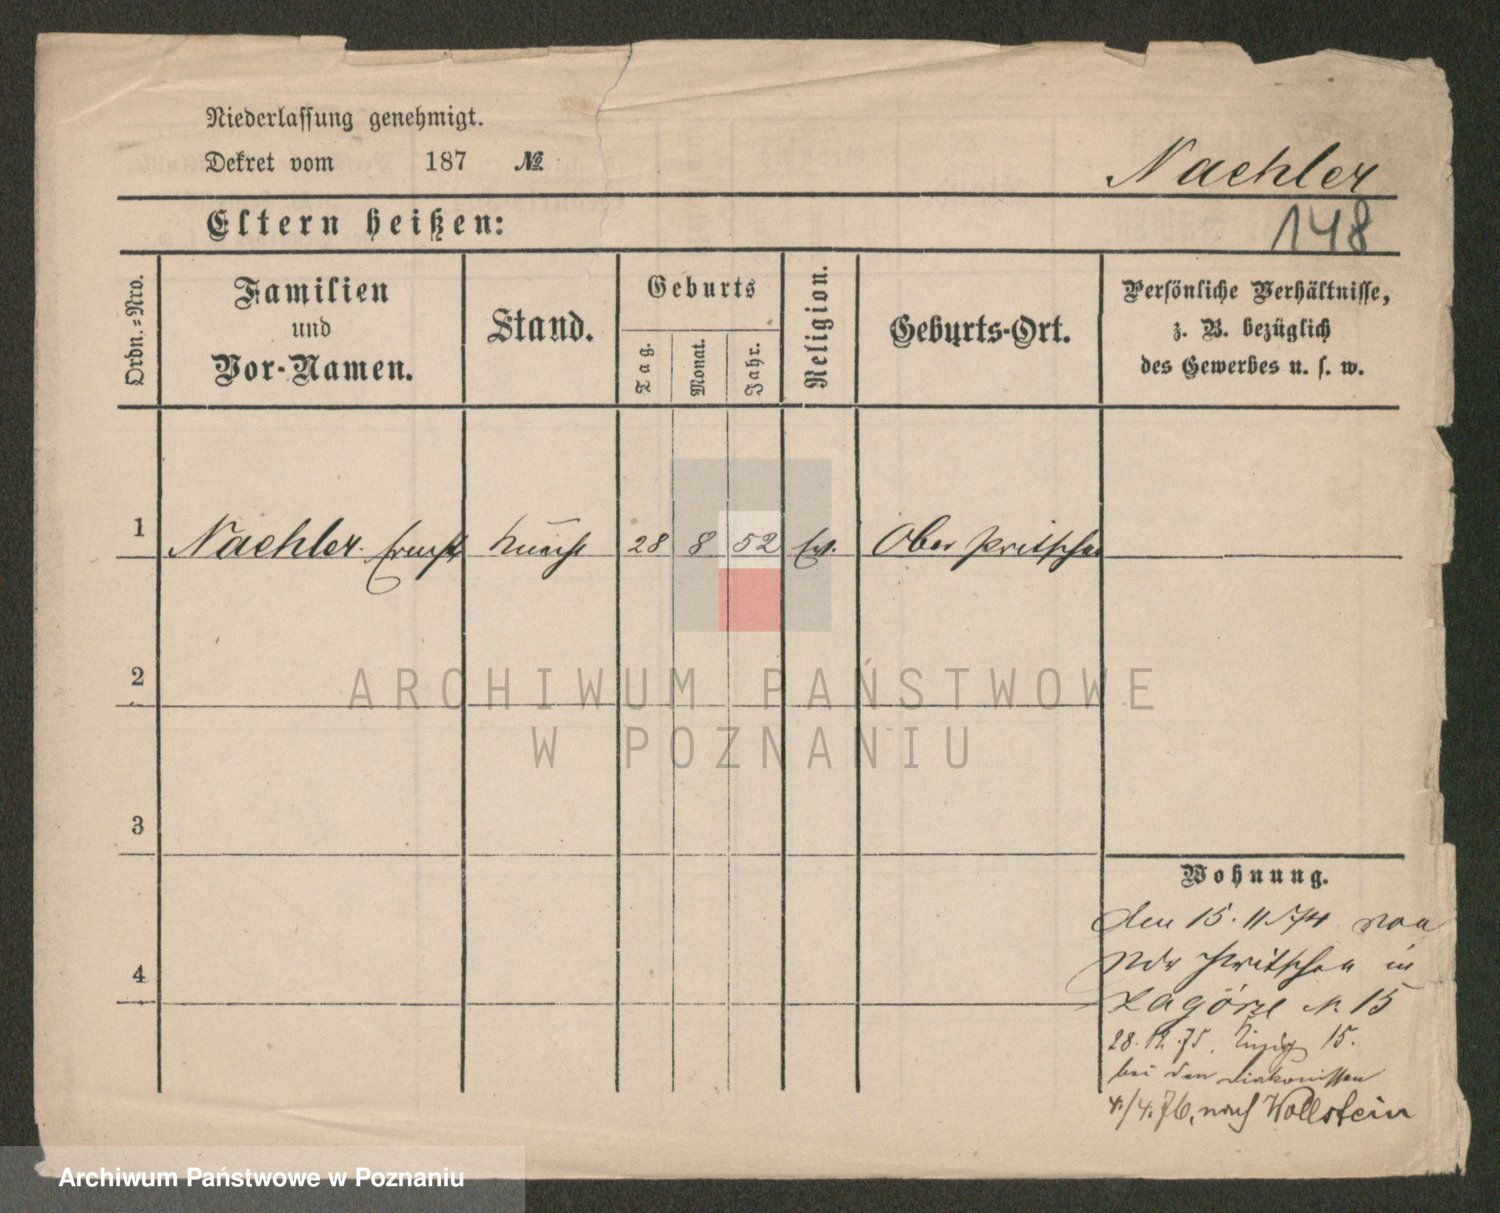 Niederlassung genehmigt.
Dekret vom 187 №
Naehler
Eltern heißen:
148
Ordn.-Nro.
Familien und Vor-Namen.
Stand.
Geburts
Tag.
Monat.
Jahr.
Religion.
Geburts-Ort.
Persönliche Verhältnisse,
z. B. bezüglich
des Gewerbes u. s. w.
1 Naehler Ernst Knecht 28 8 52 Ev. Ober Pritschen
2
3
4
Wohnung.
den 15. 11 74 von
Ndr Pritschen in
Zagórze № 15
28. 12. 75. 15.
bei den Diakonissen
4./4. 76, nach Wollstein
ARCHIWUM PAŃSTWOWE
W POZNANIU
Archiwum Państwowe w Poznaniu